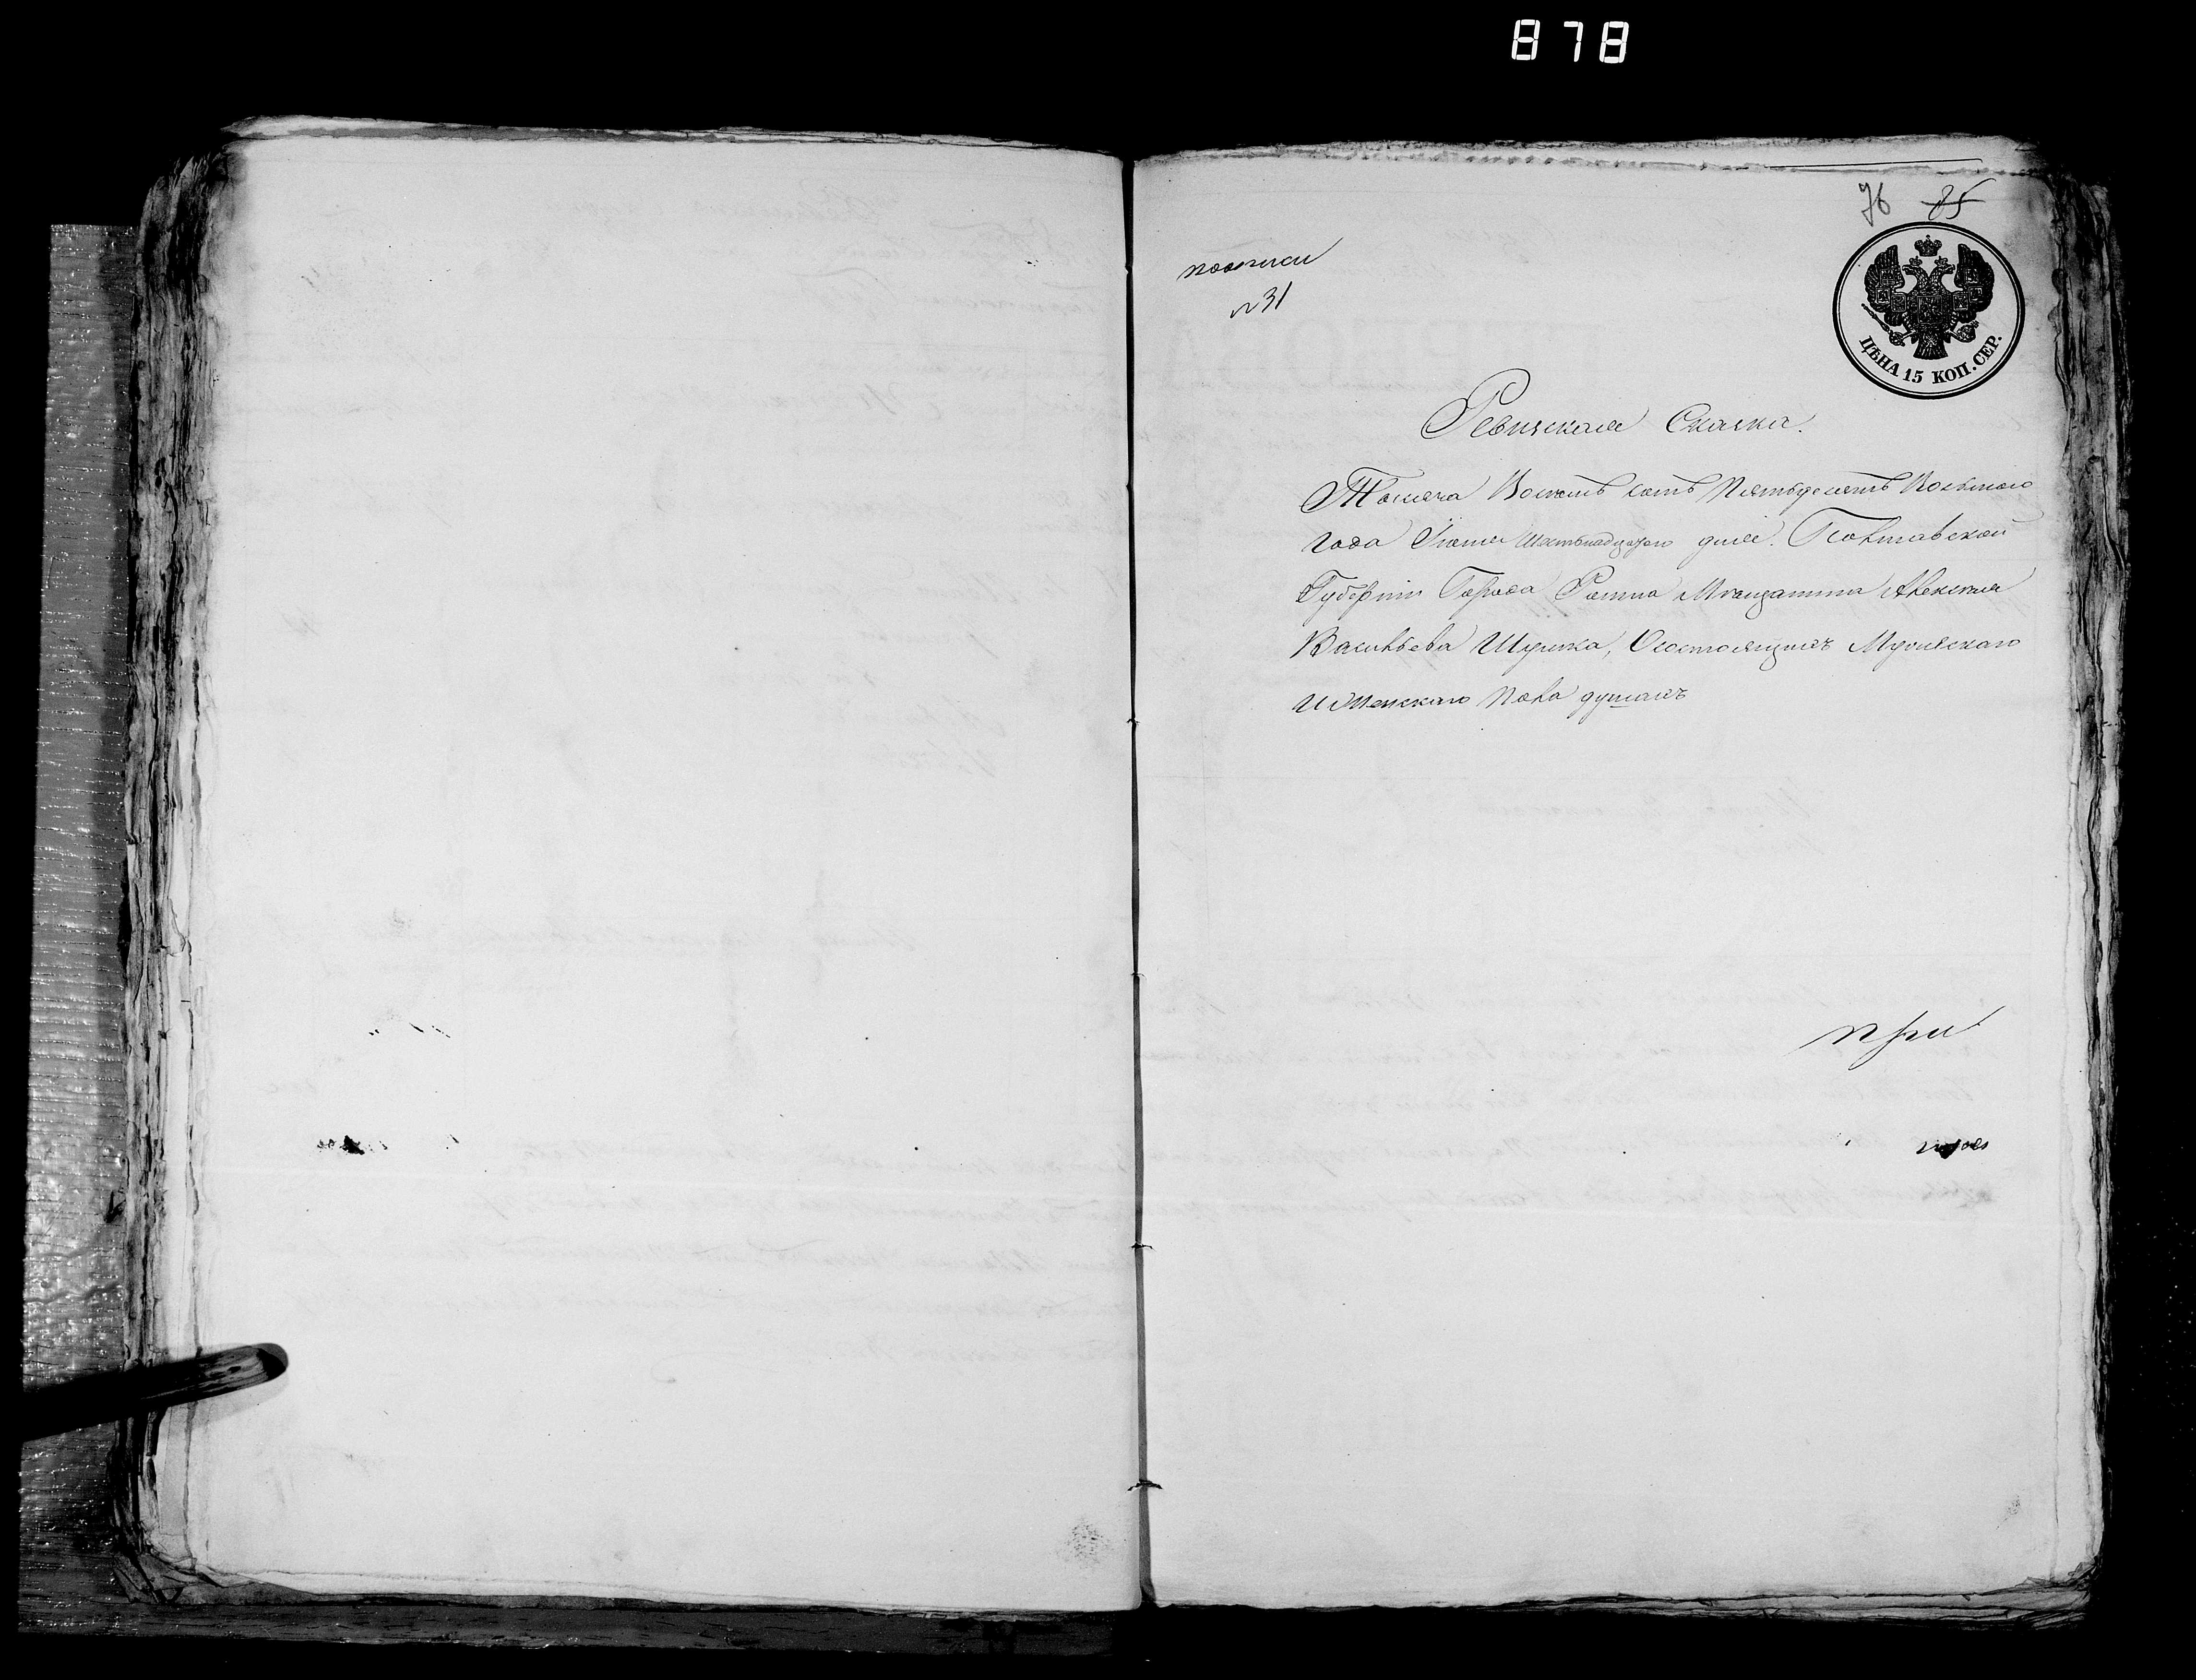 878
76 85
по описи
№31
ЦѢНА 15 КОП. СЕР.
Ревизская Сказка.
Тысяча Восемь сотъ Пятьдесятъ Восьмого
года Iюня Шестьнадцатого дня. Полтавской
Губернiи Города Ромна Мѣщанина Алексѣя
Васильева Шушка, О состоящихъ Мужескаго
и Женскаго пола душахъ
при